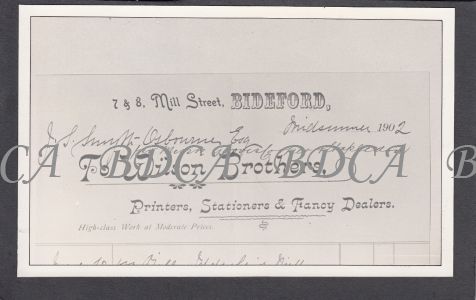 7 & 8, Mill Street, BIDEFORD,
Midsummer 1902
J. S. Smyth-Osbourne Esq
BDCA BDCA BDCA
To Wilson Brothers,
Printers, Stationers & Fancy Dealers.
High-class Work at Moderate Prices.